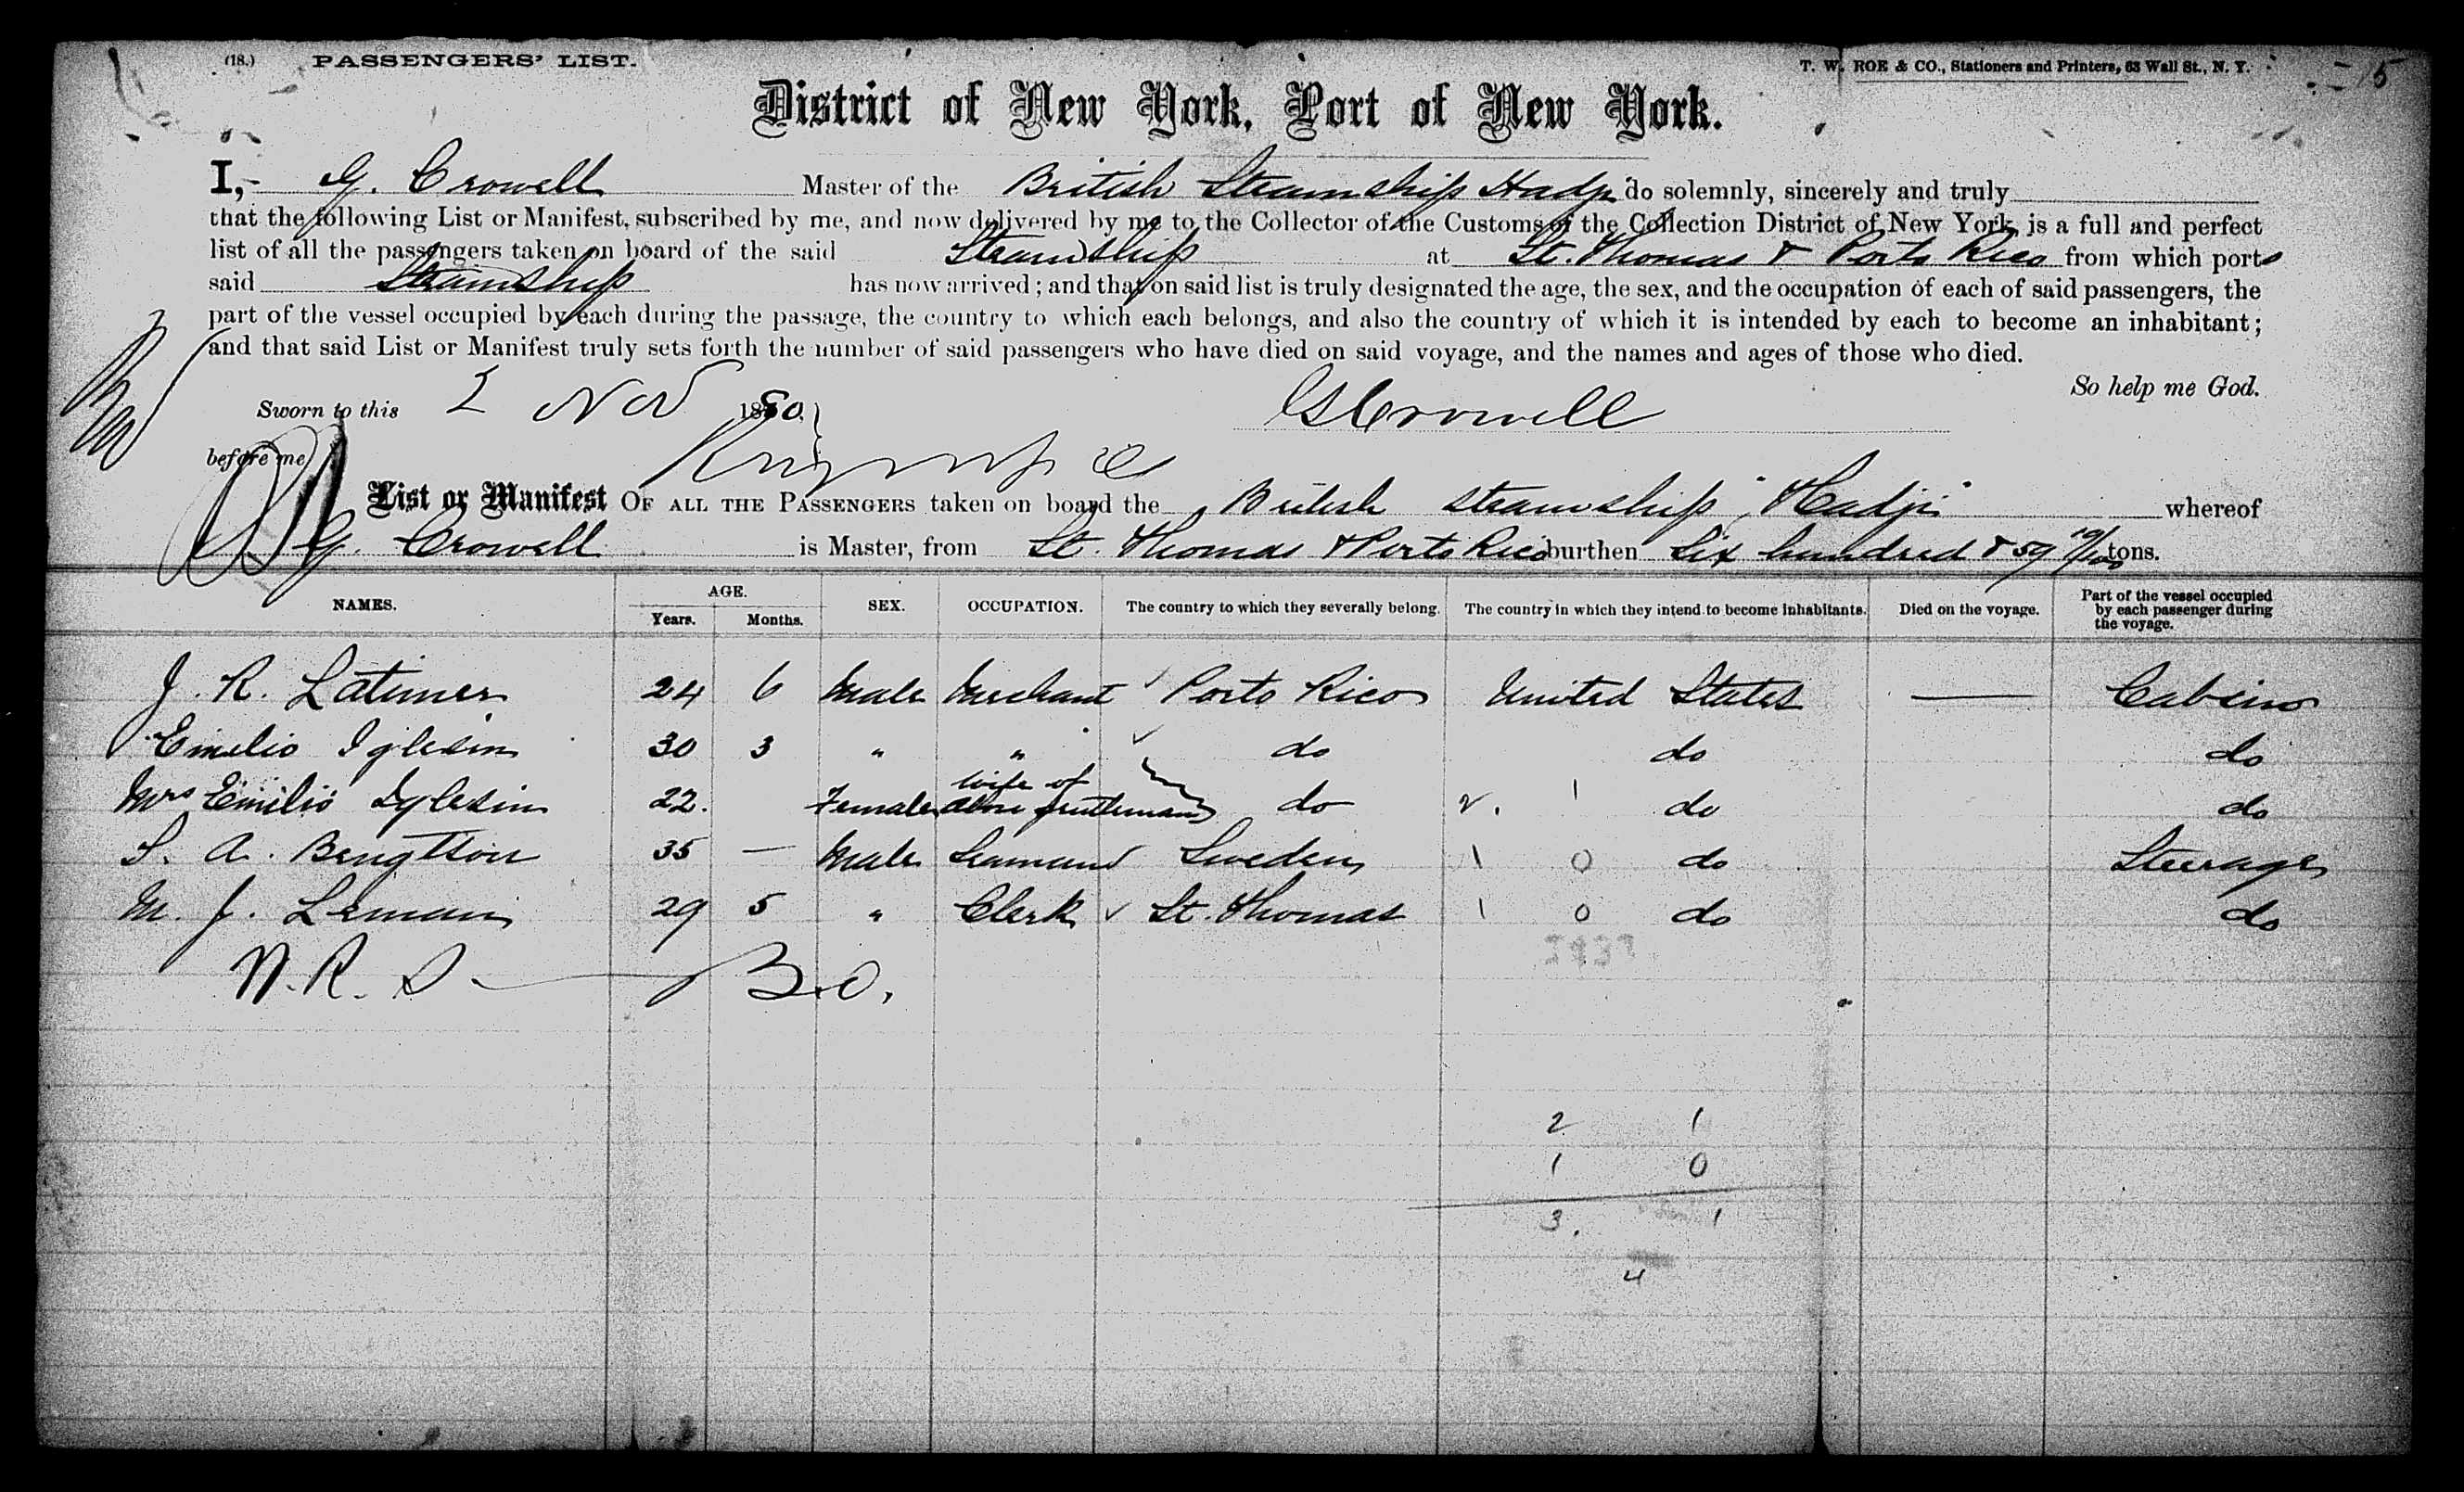 (18.) PASSENGERS' LIST. T. W. ROE & CO., Stationers and Printers, 63 Wall St., N. Y. 15
District of New York, Port of New York.
I, G. Crowell Master of the British Steamship Hadji do solemnly, sincerely and truly
that the following List or Manifest, subscribed by me, and now delivered by me to the Collector of the Customs of the Collection District of New York, is a full and perfect
list of all the passengers taken on board of the said Steamship at St. Thomas & Porto Rico from which ports
said Steamship has now arrived; and that on said list is truly designated the age, the sex, and the occupation of each of said passengers, the
part of the vessel occupied by each during the passage, the country to which each belongs, and also the country of which it is intended by each to become an inhabitant;
and that said List or Manifest truly sets forth the number of said passengers who have died on said voyage, and the names and ages of those who died.
So help me God.
Sworn to this 2 Nov 1880 G Crowell
before me
List or Manifest OF ALL THE PASSENGERS taken on board the British Steamship "Hadji" whereof
G. Crowell is Master, from St. Thomas & Porto Rico burthen Six hundred & 59 19/100 tons.
NAMES. AGE. Years. Months. SEX. OCCUPATION. The country to which they severally belong. The country in which they intend to become inhabitants. Died on the voyage. Part of the vessel occupied by each passenger during the voyage.
J. R. Latimer 24 6 Male Merchant Porto Rico United States — Cabin
Emilio Iglesin 30 3 " " do do do
Mrs Emilio Iglesin 22. Female wife of above gentleman do do do
S. A. Bengtson 35 — Male Seaman Sweden 1 0 do Steerage
M. J. Leman 29 5 " Clerk St. Thomas 1 0 do do
N. R. D. B.O.
2 1
1 0
3. 1
4